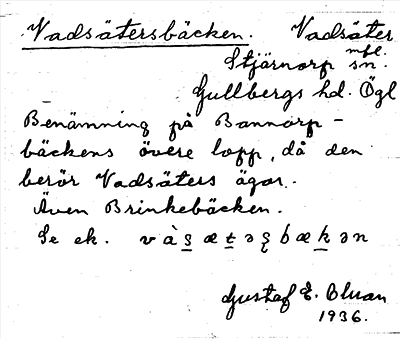 Vadsätersbäcken. Vadsäter
mfl.
Stjärnorp sn.
Gullbergs hd. Ögl
Benämning på Bannorp-
bäckens övere lopp, då den
berör Vadsäters ägor.
Även Brinkebäcken.
Se ek. vàs̲æt̲əʂbæk̲ən
Gustaf E. Bluan
1936.